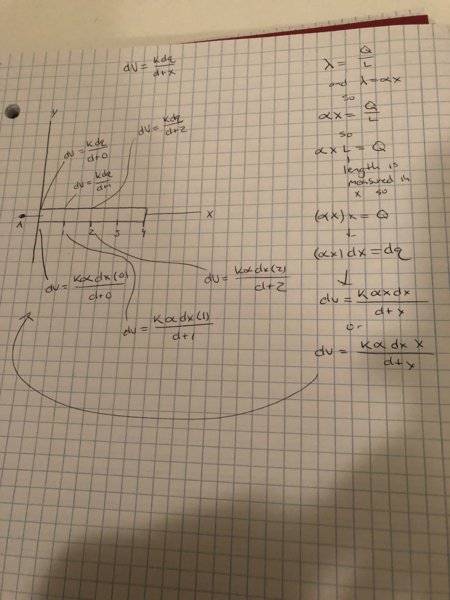 dV = kdq/d+x
y
dV = kdq/d+2
dV = kdq/d+0
dV = kdq/d+1
A
1 2 3 4
x
dV = kα dx(0)/d+0
dV = kα dx(2)/d+2
dV = kα dx(1)/d+1
λ = Q/L
and λ=αx
so
αx = Q/L
so
αxL = Q
length is
measured in
x so
(αx)x = Q
(αx)dx = dq
dV = kαxdx/d+x
or
dV = kα dx x/d+x